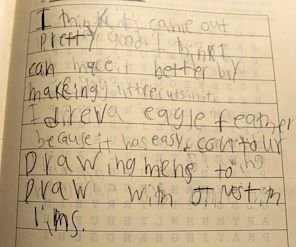 I think it came out
pretty good. I think I
can make it better by
makeing little cuts in it.
I drew a eagle feather
because it was easy
Drawing to
Draw with
lins.